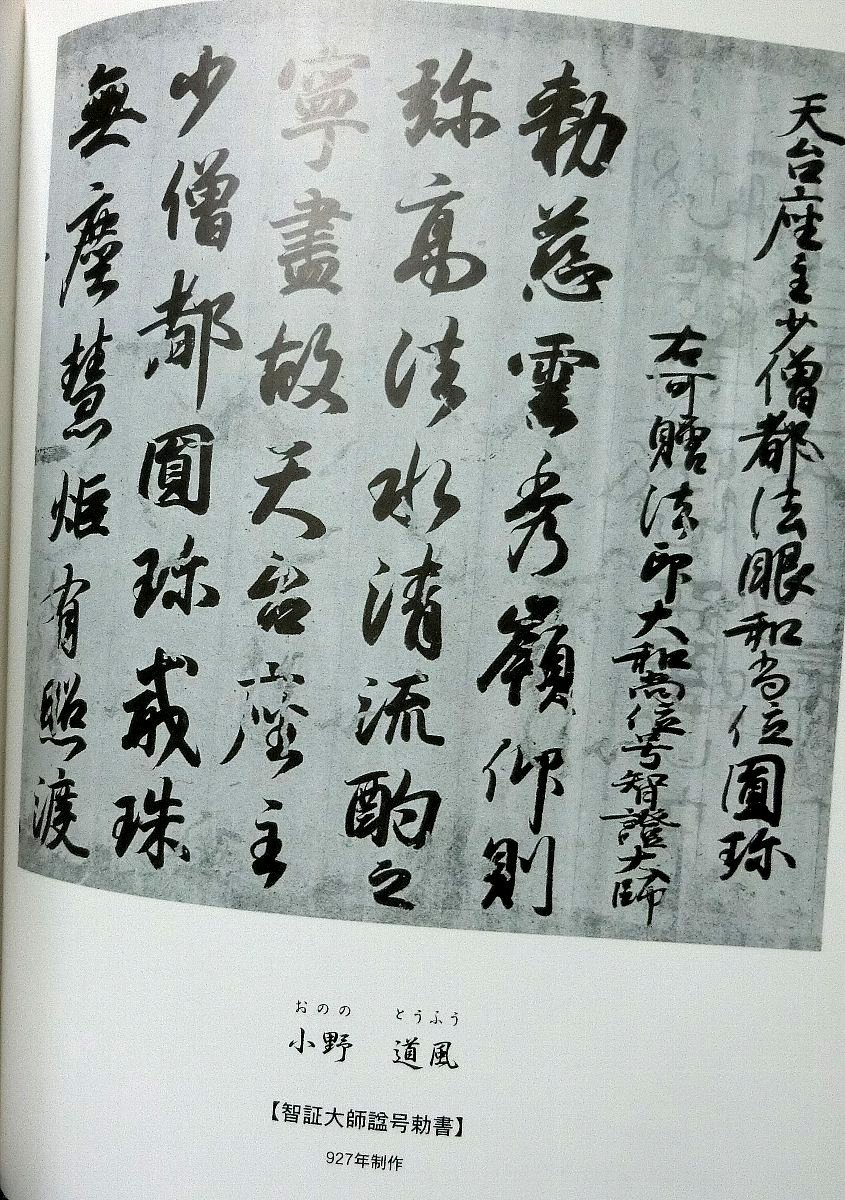 天台座主少僧都法眼和尚位圓珎
右可贈法印大和尚位号智證大師
勅慈雲秀嶺仰則
弥高法水清流酌之
寧盡故天台座主
少僧都圓珎戒珠
無塵慧炬有照渡
おのの とうふう
小野 道風
【智証大師諡号勅書】
927年制作